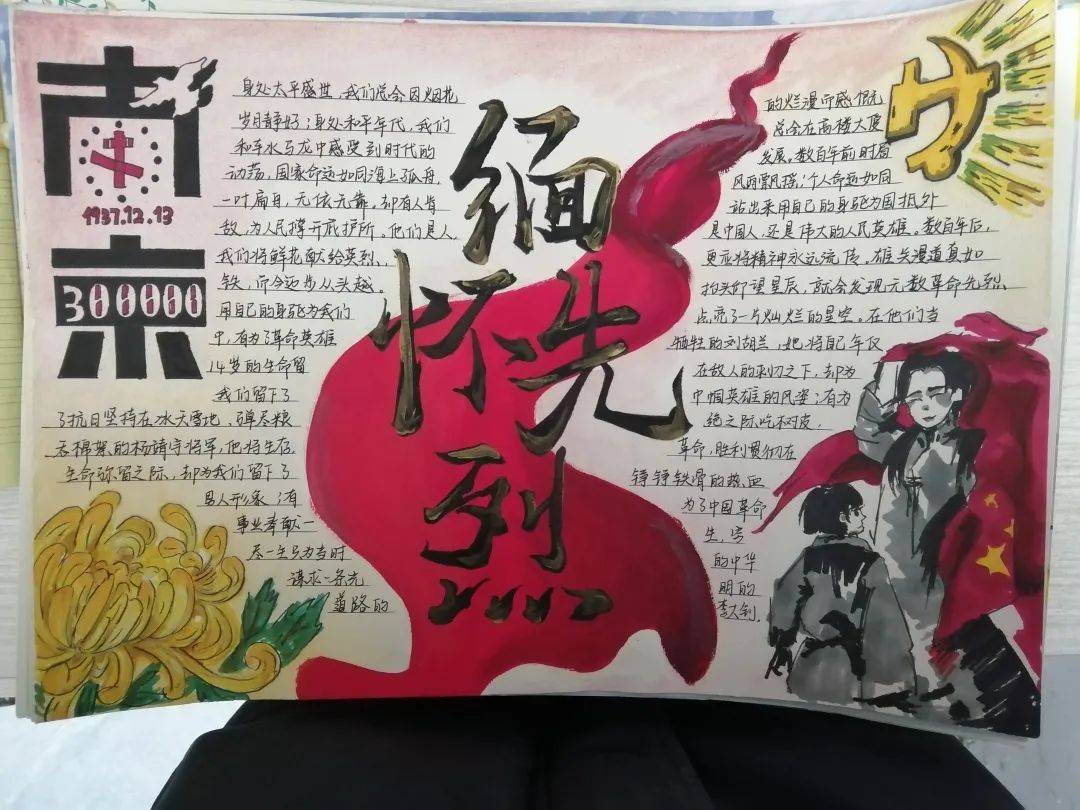 南
1937.12.13
京
300000
缅
怀
先
烈
身处太平盛世,我们总会因烟花
岁月静好;身处和平年代,我们
和车水马龙中感受到时代的
动荡,国家命运如同海上孤舟,
一叶扁舟,无依无靠。却有人肯
敌,为人民撑开庇护所。他们是人,
我们将鲜花献给英烈、
铁,而今迈步从头越。
用自己的身躯为我们
中,有为了革命英雄
14岁的生命留
我们留下了
了抗日坚持在冰天雪地、弹尽粮
吞棉絮的杨靖宇将军,他将生后
生命弥留之际,却为我们留下了
男人形象;有
事业奉献一
尽一生只为当时
谋求一条光
道路的
的烂漫而感
总会在高楼大厦
发展。数百年前时局
风雨飘摇;个人命运如同
站出来用自己的身躯为国抵外
是中国人,还是伟大的人民英雄。数百年后,
更应将精神永远流传。雄关漫道真如
抬头仰望星辰,就会发现无数革命先烈、
点亮了一片灿烂的星空。在他们当
牺牲的刘胡兰,她将自己年仅
在敌人的之下,却为
巾帼英雄的风姿;有为
绝之际吃树皮,
革命,胜利贯彻在
铮铮铁骨的热血
为了中国革命
生,
的中华
明的
李大钊。